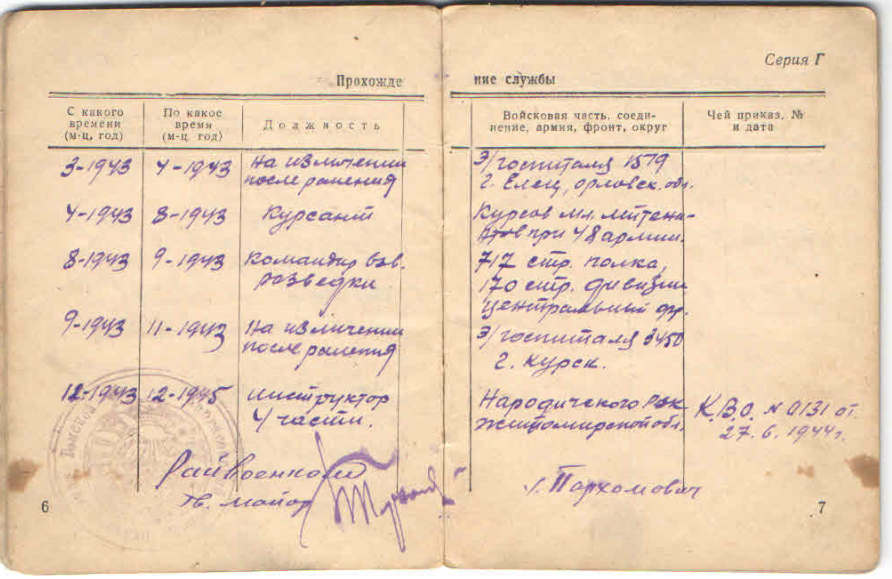 Серия Г
Прохожде ние службы
С какого времени (м-ц, год)
По какое время (м-ц. год)
Должность
Войсковая часть, соеди-
нение, армия, фронт, округ
Чей приказ, №
и дата
3-1943 4-1943 На изличении
после ранения
Э/госпиталя 1579
г. Елец, орловск. обл.
4-1943 8-1943 Курсант
Курсов мл. лейтена-
нтов при 48 армии.
8-1943 9-1943 Командир взв.
разведки
717 стр. полка,
170 стр. дивизии
центральный фр.
9-1943 11-1943 На изличении
после ранения
Э/госпиталя 3450
г. Курск.
12-1943 12-1945 Инструктор
4 части.
Народического рвк
Житомирской обл.
К.В.О. № 0131 от
27.6.1944г.
Райвоенком
гв. майор
Пархомович
6
7